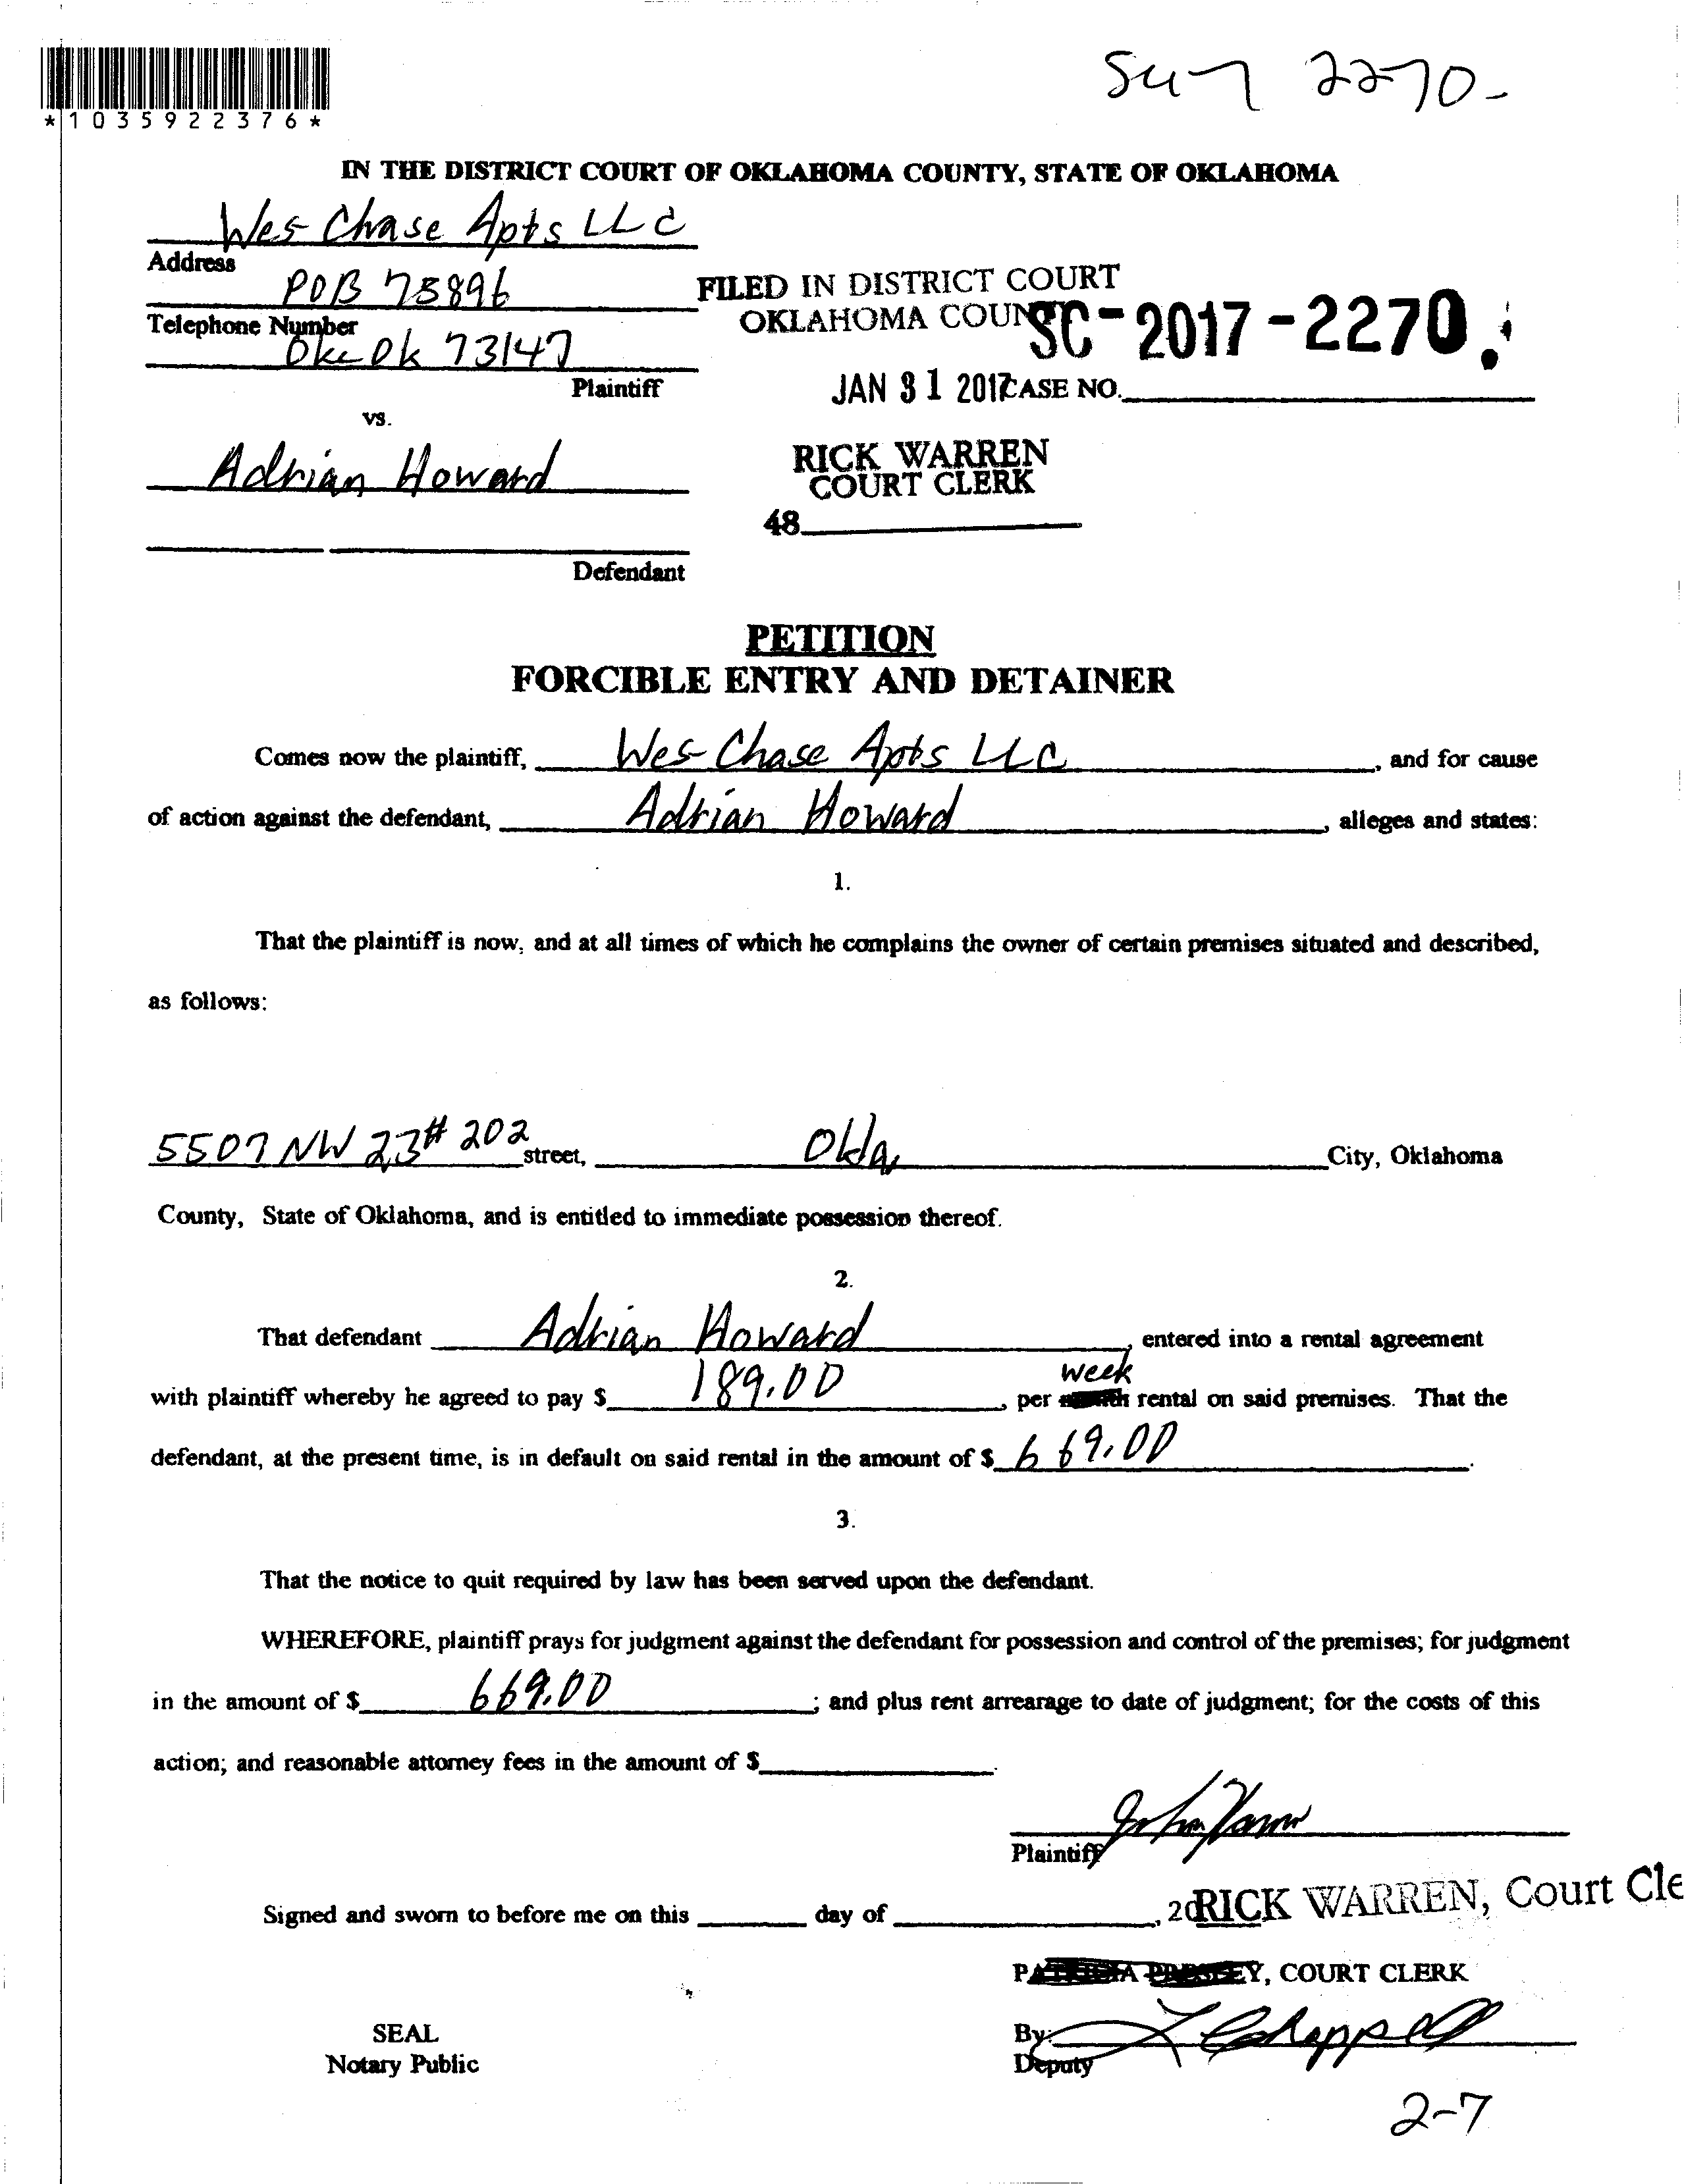 *1035922376*
2270-
IN THE DISTRICT COURT OF OKLAHOMA COUNTY, STATE OF OKLAHOMA
Wes Chase Apts LLC
Address
POB 75896
Telephone Number
Okc Ok 73147
Plaintiff
FILED IN DISTRICT COURT
OKLAHOMA COUNT
SC-2017-2270
JAN 31 2017
CASE NO.
vs.
Adrian Howard
RICK WARREN
COURT CLERK
48
Defendant
PETITION
FORCIBLE ENTRY AND DETAINER
Comes now the plaintiff, Wes Chase Apts LLC, and for cause
of action against the defendant, Adrian Howard, alleges and states:
1.
That the plaintiff is now, and at all times of which he complains the owner of certain premises situated and described,
as follows:
5507 NW 23 # 202 street, Okla City, Oklahoma
County, State of Oklahoma, and is entitled to immediate possession thereof.
2.
That defendant Adrian Howard, entered into a rental agreement
with plaintiff whereby he agreed to pay $ 189.00, per week rental on said premises. That the
defendant, at the present time, is in default on said rental in the amount of $ 669.00.
3.
That the notice to quit required by law has been served upon the defendant.
WHEREFORE, plaintiff prays for judgment against the defendant for possession and control of the premises; for judgment
in the amount of $ 669.00; and plus rent arrearage to date of judgment; for the costs of this
action; and reasonable attorney fees in the amount of $
Plaintiff
Signed and sworn to before me on this day of , 20
RICK WARREN, Court Cle
COURT CLERK
SEAL
Notary Public
By:
Deputy
2-7